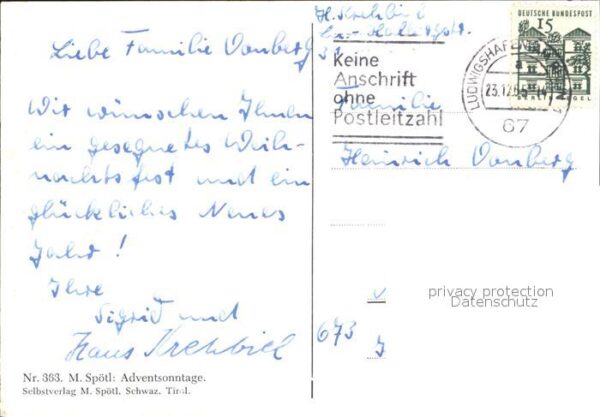 Liebe Familie Vonberg
Wir wünschen Ihnen
ein gesegnetes Weih-
nachtsfest und ein
glückliches Neues
Jahr!
Ihre
Sigrid und
Hans Krehbiel
Nr. 363. M. Spötl: Adventsonntage.
Selbstverlag M. Spötl, Schwaz, Tirol.
H. Krehbiel
Keine
Anschrift
ohne
Postleitzahl
DEUTSCHE BUNDESPOST
15
LUDWIGSHAFEN
23.12.65
67
Familie
Heinrich Vonberg
privacy protection
Datenschutz
673